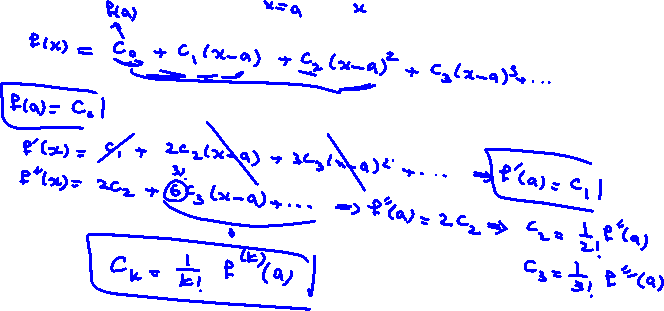 f(a) x=a x
f(x) = C₀ + C₁(x-a) + C₂(x-a)² + C₃(x-a)³+...
f(a) = C₀
f'(x) = C₁ + 2C₂(x-a) + 3C₃(x-a)² + ... ⇒ f'(a) = C₁
3!
f''(x) = 2C₂ + 6C₃(x-a) + ... ⇒ f''(a) = 2C₂ ⇒ C₂ = 1/2! f''(a)
C₃ = 1/3! f'''(a)
Cₖ = 1/k! f⁽ᵏ⁾(a)